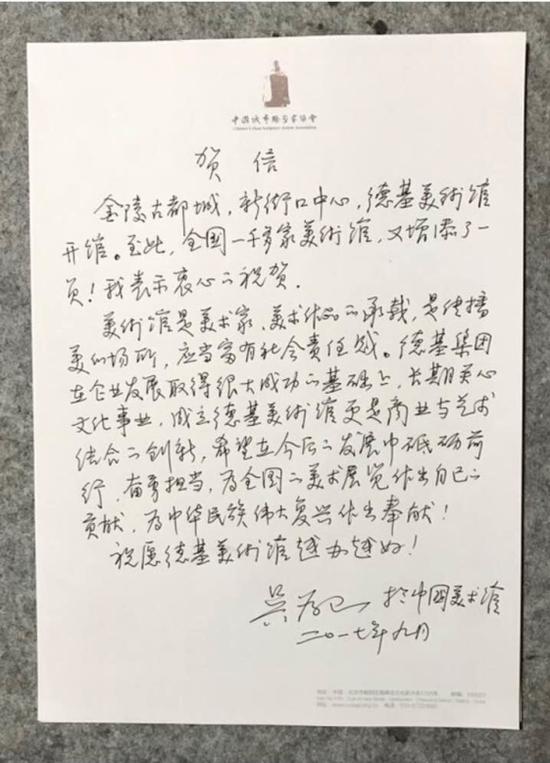 中国城市雕塑家协会
贺信
金陵古都城，新街口中心，德基美術馆
开馆。至此，全国一千多家美術馆，又增添了一
员！我表示衷心的祝贺．
美術馆是美术家、美术作品的承载，是传播
美的场所，应当富有社会责任感。德基集团
在企业发展取得很大成功的基础上，长期关心
文化事业，成立德基美術馆更是商业与艺术
结合的创新，希望在今后的发展中砥砺前
行，奋勇担当，为全国的美术展览作出自己的
贡献，为中华民族伟大复兴作出奉献！
祝愿德基美術馆越办越好！
吴为山 於中國美术馆
二〇一七年九月